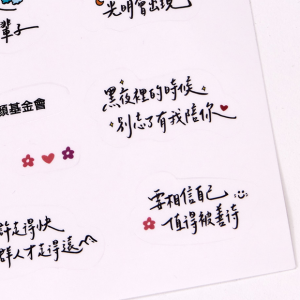 輩子
光明會出現
黑夜裡的時候
別忘了有我陪你
願基金會
要相信自己
值得被善待
許走得快
群人才走得遠